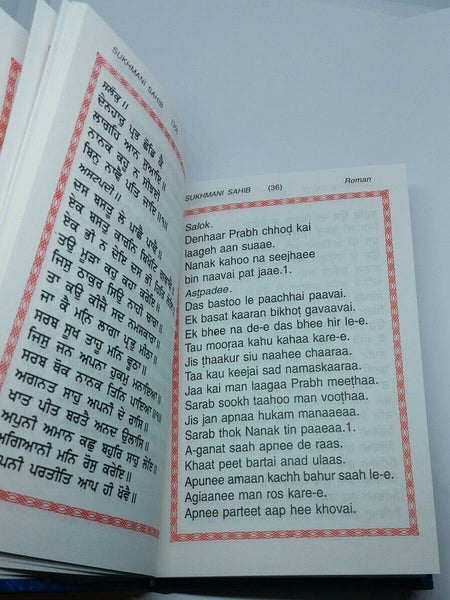 SUKHMANI SAHIB
ਸਲੋਕੁ ॥
ਦੇਨਹਾਰੁ ਪ੍ਰਭ ਛੋਡਿ ਕੈ
ਲਾਗਹਿ ਆਨ ਸੁਆਇ ॥
ਨਾਨਕ ਕਹੂ ਨ ਸੀਝਈ
ਬਿਨੁ ਨਾਵੈ ਪਤਿ ਜਾਇ ॥੧॥
ਅਸਟਪਦੀ ॥
ਦਸ ਬਸਤੂ ਲੇ ਪਾਛੈ ਪਾਵੈ ॥
ਏਕ ਬਸਤੁ ਕਾਰਨਿ ਬਿਖੋਟਿ ਗਵਾਵੈ ॥
ਏਕ ਭੀ ਨ ਦੇਇ ਦਸ ਭੀ ਹਿਰਿ ਲੇਇ ॥
ਤਉ ਮੂੜਾ ਕਹੁ ਕਹਾ ਕਰੇਇ ॥
ਜਿਸੁ ਠਾਕੁਰ ਸਿਉ ਨਾਹੀ ਚਾਰਾ ॥
ਤਾ ਕਉ ਕੀਜੈ ਸਦ ਨਮਸਕਾਰਾ ॥
ਜਾ ਕੈ ਮਨਿ ਲਾਗਾ ਪ੍ਰਭੁ ਮੀਠਾ ॥
ਸਰਬ ਸੂਖ ਤਾਹੂ ਮਨਿ ਵੂਠਾ ॥
ਜਿਸੁ ਜਨ ਅਪਨਾ ਹੁਕਮੁ ਮਨਾਇਆ ॥
ਸਰਬ ਥੋਕ ਨਾਨਕ ਤਿਨਿ ਪਾਇਆ ॥੧॥
ਅਗਨਤ ਸਾਹੁ ਅਪਨੀ ਦੇ ਰਾਸਿ ॥
ਖਾਤ ਪੀਤ ਬਰਤੈ ਅਨਦ ਉਲਾਸਿ ॥
ਅਪੁਨੀ ਅਮਾਨ ਕਛੁ ਬਹੁਰਿ ਸਾਹੁ ਲੇਇ ॥
ਅਗਿਆਨੀ ਮਨਿ ਰੋਸੁ ਕਰੇਇ ॥
ਅਪਨੀ ਪਰਤੀਤਿ ਆਪ ਹੀ ਖੋਵੈ ॥
SUKHMANI SAHIB (36) Roman
Salok.
Denhaar Prabh chhoḍ kai
laageh aan suaae.
Nanak kahoo na seejhaee
bin naavai pat jaae.1.
Asṭpadee.
Das bastoo le paachhai paavai.
Ek basat kaaran bikhoṭ gavaavai.
Ek bhee na de-e das bhee hir le-e.
Tau mooṛaa kahu kahaa kare-e.
Jis ṭhaakur siu naahee chaaraa.
Taa kau keejai sad namaskaaraa.
Jaa kai man laagaa Prabh meeṭhaa.
Sarab sookh taahoo man vooṭhaa.
Jis jan apnaa hukam manaaeaa.
Sarab thok Nanak tin paaeaa.1.
A-ganat saah apnee de raas.
Khaat peet bartai anad ulaas.
Apunee amaan kachh bahur saah le-e.
Agiaanee man ros kare-e.
Apnee parteet aap hee khovai.